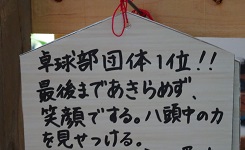 卓球部団体1位!!
最後まであきらめず、
笑顔でする。八頭中の力
を見せつける。